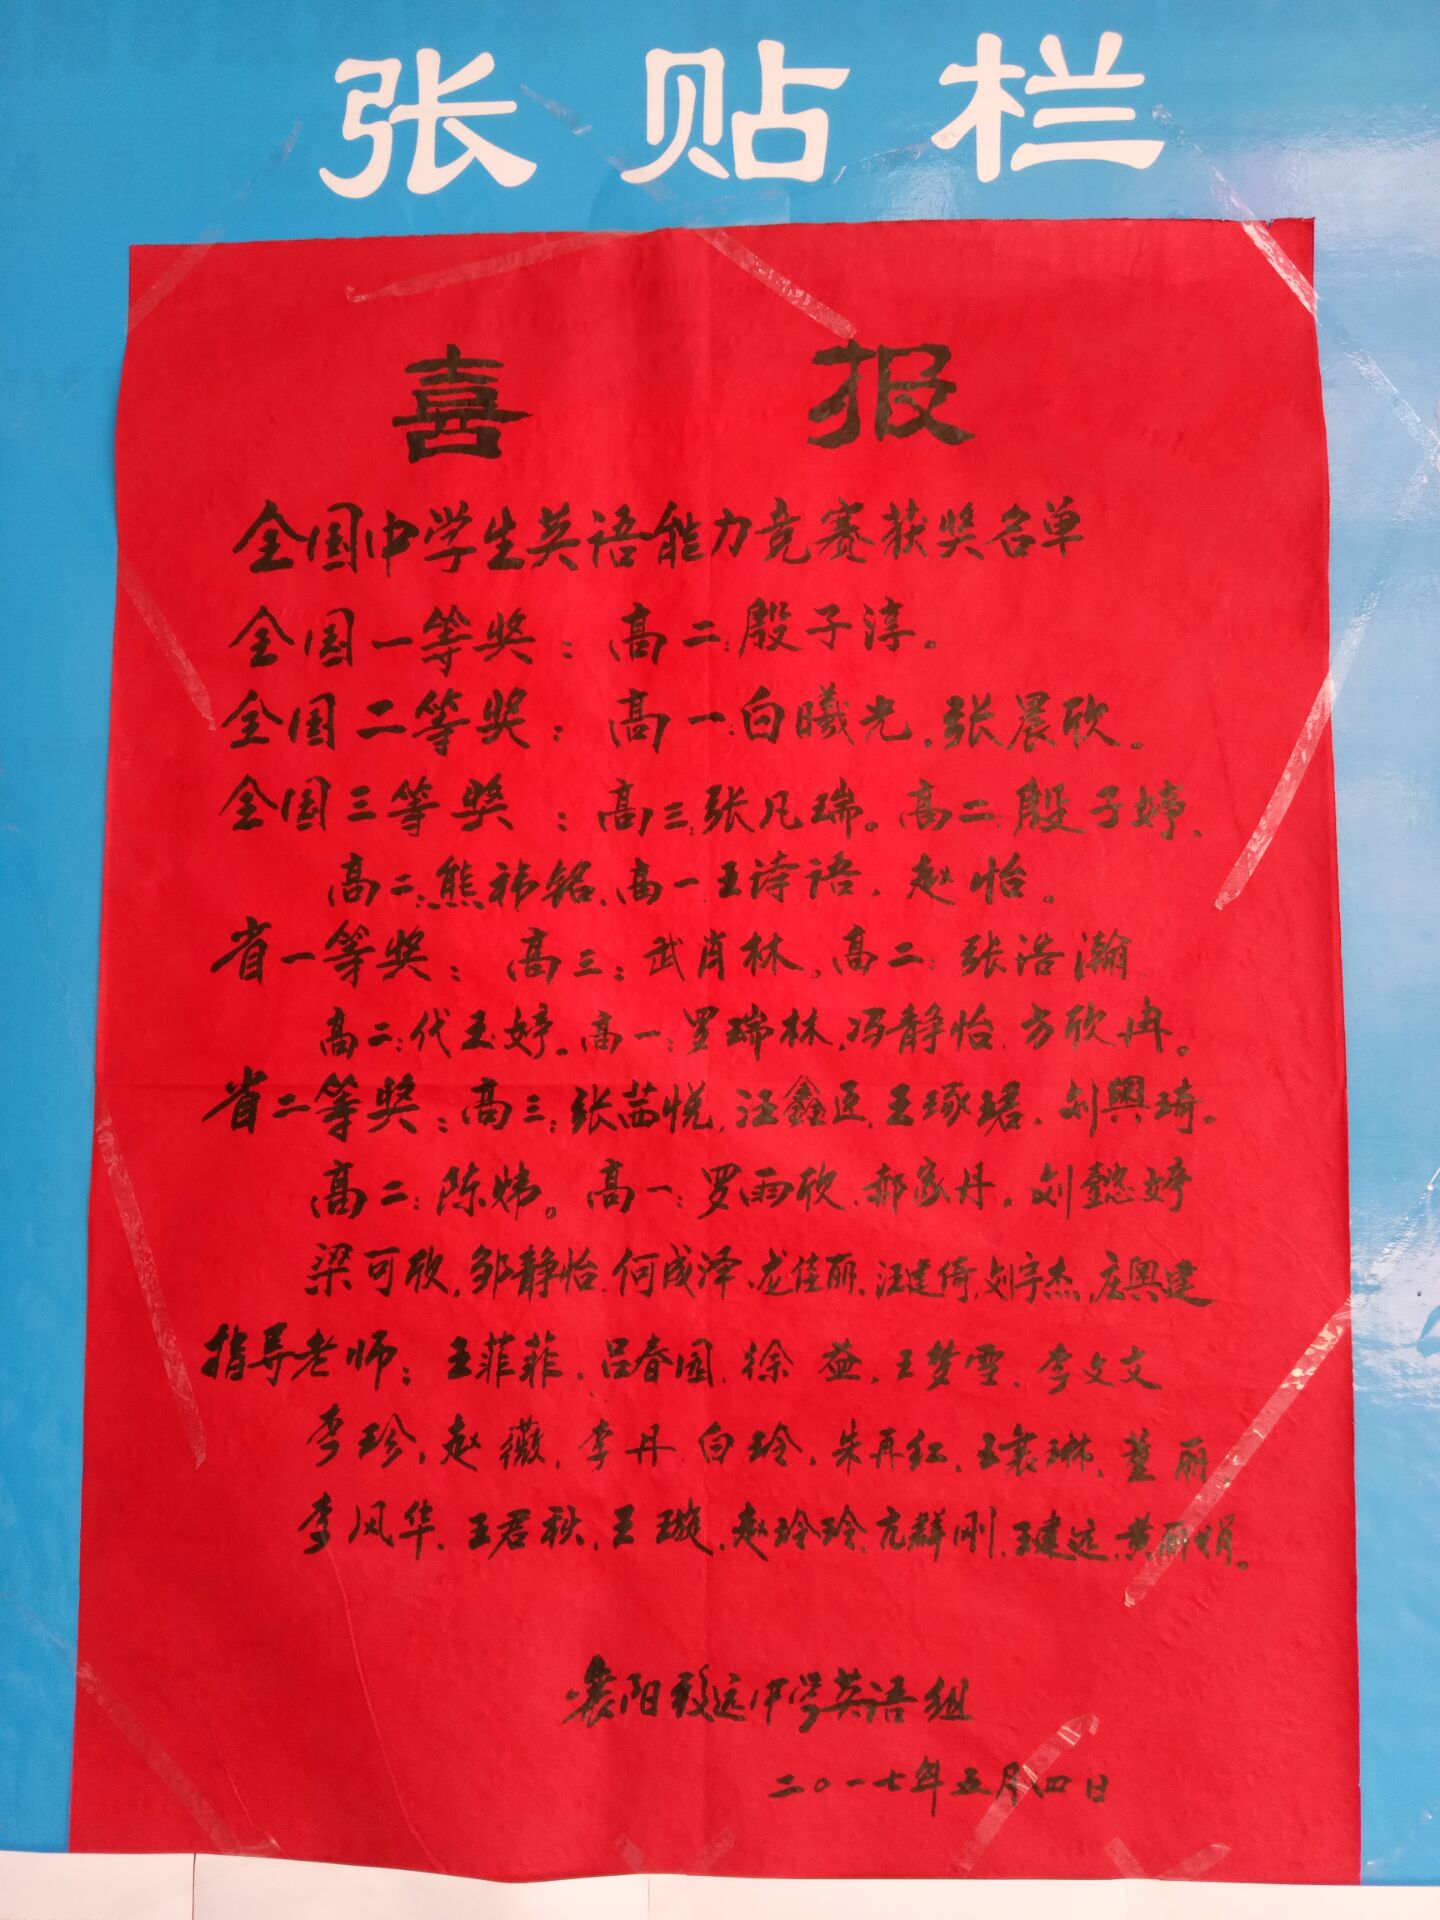 张贴栏
喜报
全国中学生英语能力竞赛获奖名单
全国一等奖：高二：殷子淳。
全国二等奖：高一：白曦光，张晨欣。
全国三等奖：高三，张凡瑞。高二：殷子婷、
高二：熊祎铭、高一王诗语，赵怡。
省一等奖：高三：武肖林。高二：张浩瀚、
高二：代玉婷。高一：罗瑞林，冯静怡、方欣冉。
省二等奖：高三：张茜悦，汪鑫臣、王琢珺，刘興琦。
高二：陈炜。高一：罗雨欣、郝家丹。刘懿婷
梁可欣，邹静怡、何成泽、龙佳丽、汪建倚，刘宇杰，庄興建
指导老师：王菲菲，吕春园、徐益，王梦雪、李文文
李珍，赵薇，李丹、白玲，朱再红，王襄琳、董丽，
李风华，王君秋，王璇，赵玲玲，亢群刚，王建远，黄丽娟。
襄阳致远中学英语组
二〇一七年五月四日